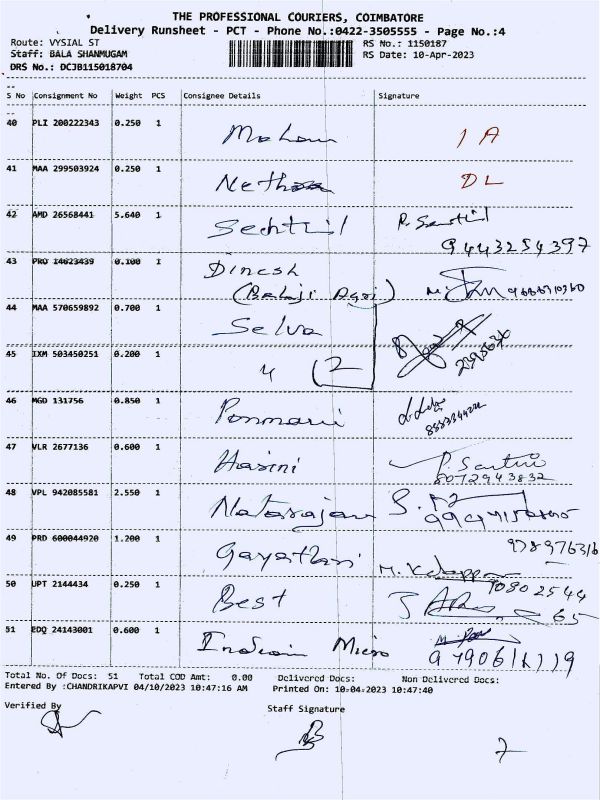 THE PROFESSIONAL COURIERS, COIMBATORE
Delivery Runsheet - PCT - Phone No.:0422-3505555 - Page No.:4
Route: VYSIAL ST RS No.: 1150187
Staff: BALA SHANMUGAM RS Date: 10-Apr-2023
DRS No.: DCJB115018704
S No Consignment No Weight PCS Consignee Details Signature
40 PLI 200222343 0.250 1 Mohan 1 A
41 MAA 299503924 0.250 1 DL
42 AMD 26568441 5.640 1 Senthil P. Senthil
9443254397
43 PRO 14623439 0.100 1 Dinesh
(Balaji Agri)
44 MAA 570659892 0.700 1 Selva
45 IXM 503450251 0.200 1 " 2
46 MGD 131756 0.850 1 Ponmani
47 VLR 2677136 0.600 1 Harini
8072943832
48 VPL 942085581 2.550 1 Natarajan
49 PRD 600044920 1.200 1 Gayathri
50 UPT 2144434 0.250 1 Best
65
51 EDQ 24143001 0.600 1 Indian Micro
Total No. Of Docs: 51 Total COD Amt: 0.00 Delivered Docs: Non Delivered Docs:
Entered By :CHANDRIKAPVI 04/10/2023 10:47:16 AM Printed On: 10-04-2023 10:47:40
Verified By Staff Signature
7